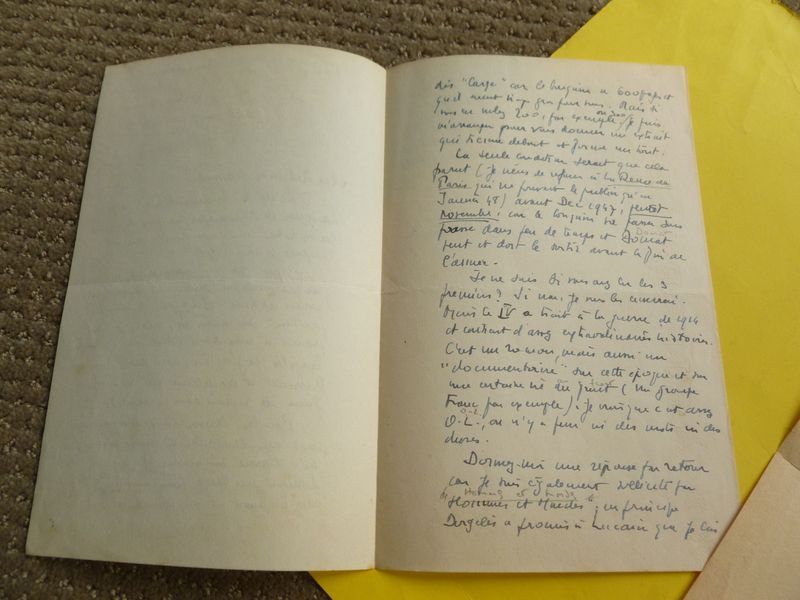 dès "large" car le bouquin a 600 pages et
qu'il devient trop gros pour vous. Mais si
vous en voulez 200, par exemple, ou 300, je puis
m'arranger pour vous donner un extrait
qui ticune debout et forme un tout.
La seule condition serait que cela
parut (je viens de refuser à la Revue de
Paris qui ne pouvait le publier qu'en
Janvier 48) avant Dec 1947,
novembre, car le bouquin va
dans peu de temps et Domat
peut et doit le sortir avant la fin de
l'année.
Je ne sais si vous avez lu les 3
premiers? Si non, je vous les enverrai.
Mais le IV a trait à la guerre de 1914
et contient d'assez extraordinaires histoires.
C'est un roman, mais aussi un
"documentaire" sur cette époque et sur
une certaine vie du front (un groupe
Franc par exemple). Je crois que c'est assez
O.L., on n'y a peur ni des mots ni des
choses.
Donnez-moi une réponse par retour
car je suis également sollicité par
Hommes et Mondes
Hommes et Mondes; en principe
Dorgelès a promis à que je